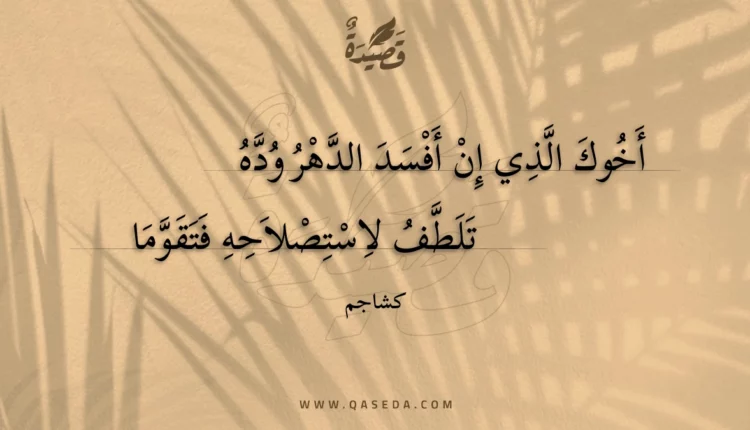 قَصِيدَةٌ
أَخُوكَ الَّذِي إِنْ أَفْسَدَ الدَّهْرُ وُدَّهُ
تَلَطَّفُ لاِسْتِصْلاَحِهِ فَتَقَوَّمَا
كشاجم
WWW.QASEDA.COM